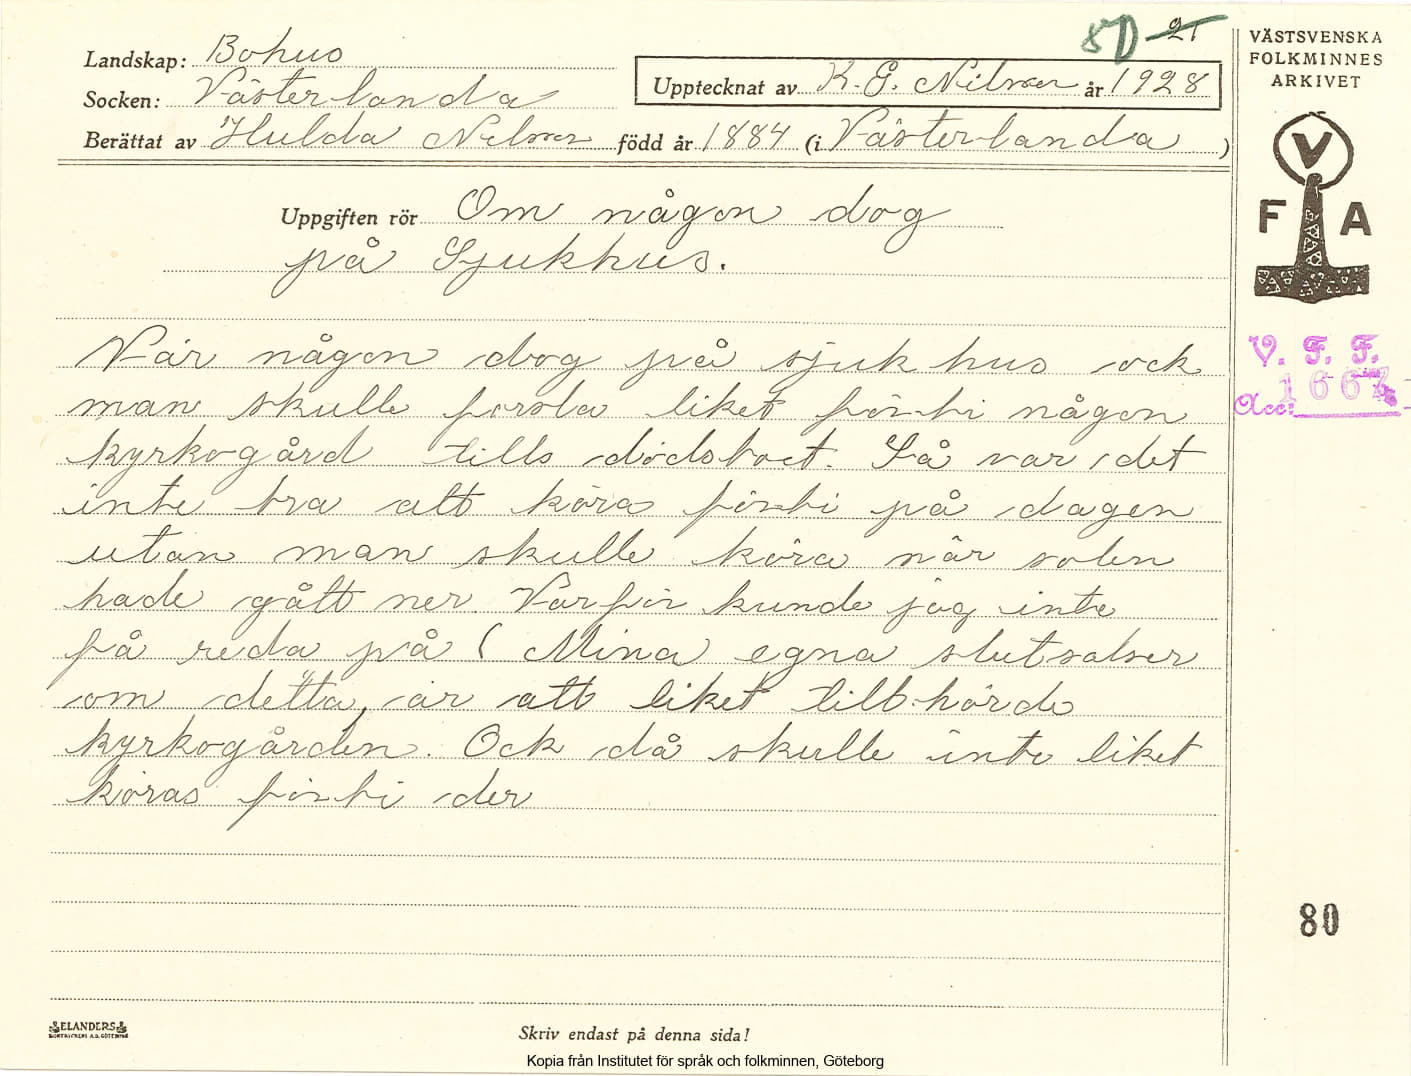 80 21
Landskap: Bohus
Socken: Västerlanda
Upptecknat av K. G. Nilsson år 1928
Berättat av Hulda Nilsson född år 1884 (i Västerlanda)
Uppgiften rör Om någon dog
på Sjukhus.
När någon dog på sjukhus ock
man skulle forsla liket förbi någon
kyrkogård tills dödsboet. Så var det
inte bra att köras förbi på dagen
utan man skulle köra när solen
hade gått ner. Varför kunde jag inte
få reda på ( Mina egna slutsalser
om detta, är att liket tillhörde
kyrkogården. Ock då skulle inte liket
köras förbi der
VÄSTSVENSKA
FOLKMINNES
ARKIVET
V
F A
V. F. F.
Acc:
80
ELANDERS
Skriv endast på denna sida!
Kopia från Institutet för språk och folkminnen, Göteborg